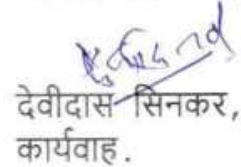 देवीदास सिनकर,
कार्यवाह.